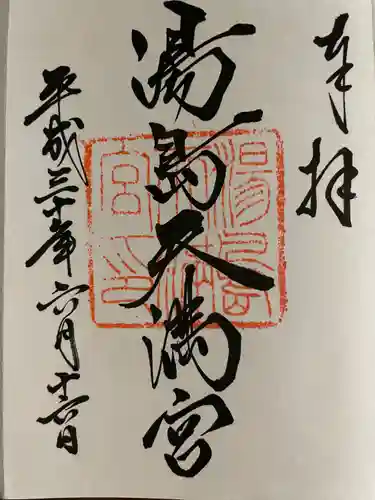 奉拝
湯島天満宮
湯島天満宮印
平成三十年六月十六日